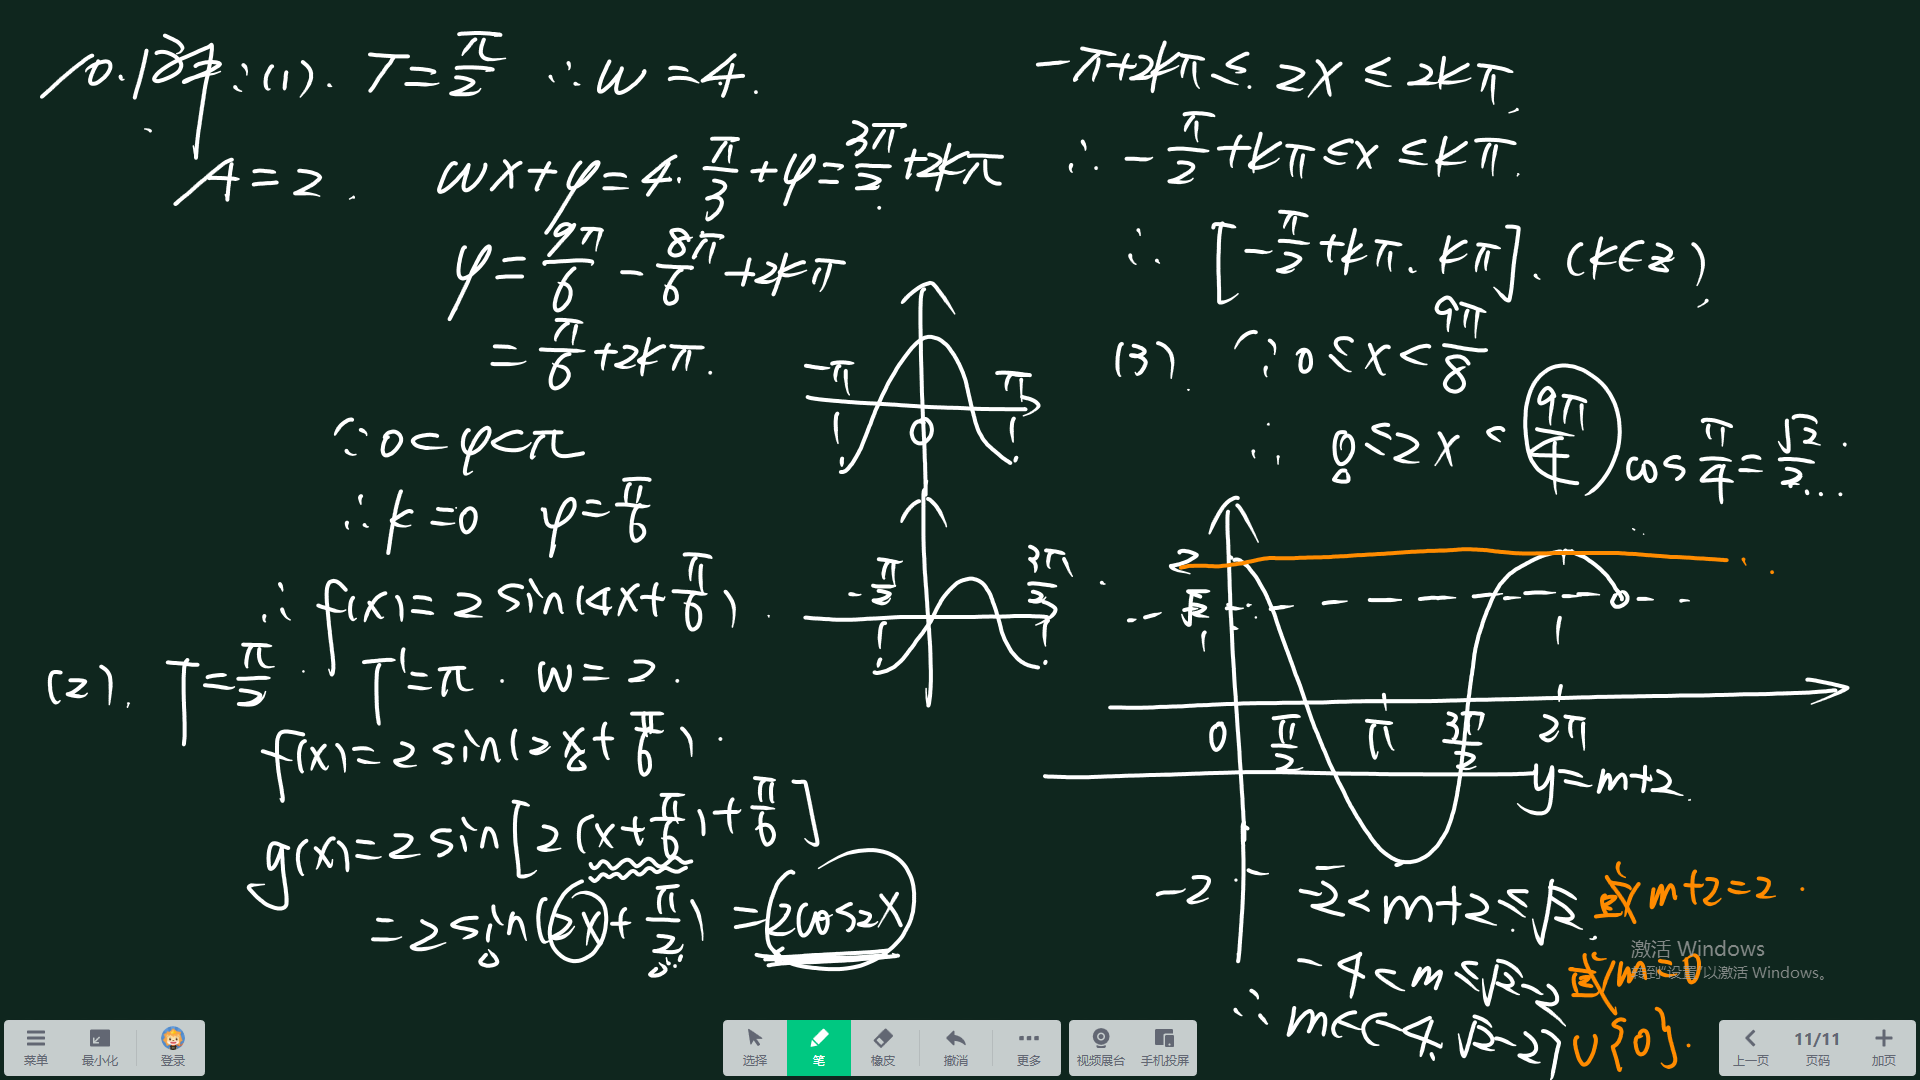 10.解:(1). T=π/2 ∴w=4.
A=2. wx+φ=4·π/3+φ=3π/2+2kπ
φ=9π/6-8π/6+2kπ
=π/6+2kπ.
∵0<φ<π
∴k=0 φ=π/6
∴f(x)=2sin(4x+π/6).
(2). T=π/2. T'=π. w=2.
f(x)=2sin(2x+π/6).
g(x)=2sin[2(x+π/6)+π/6]
=2sin(2x+π/2)=2cos2x
-π π
0
-π/2 3π/2
-π+2kπ≤2x≤2kπ.
∴-π/2+kπ≤x≤kπ.
∴[-π/2+kπ, kπ]. (k∈Z)
(3). ∵0≤x<9π/8
∴0≤2x<9π/4 cosπ/4=√2/2
2
√2
0 π/2 π 3π/2 2π
y=m+2.
-2
-2<m+2≤√2. 或m+2=2.
-4<m≤√2-2 或m=0
∴m∈(-4,√2-2]∪{0}.
激活 Windows
转到"设置"以激活 Windows。
菜单 最小化 登录
选择 笔 橡皮 撤消 更多
视频展台 手机投屏
上一页 11/11 页码 加页